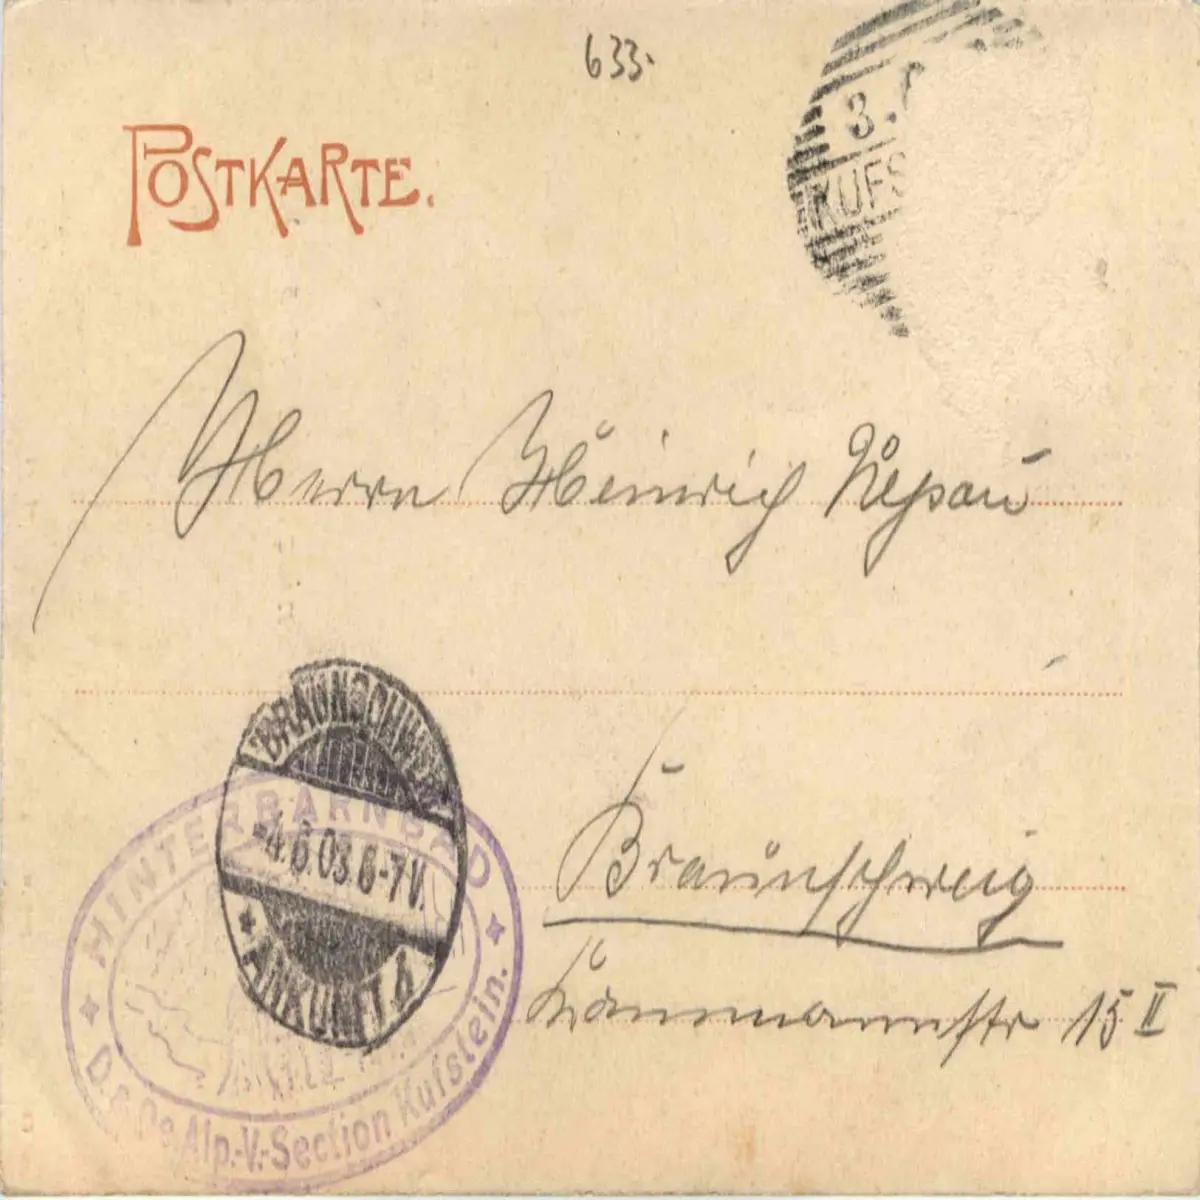 633.
POSTKARTE.
3.
KUFS
Herrn Heinrich
BRAUNSCHWEIG
-4.6.03.6-7V.
ANKUNFT.
HINTERBÄRNBAD
D.u.Oe.Alp.-V.-Section Kufstein.
Braunschweig
15 II